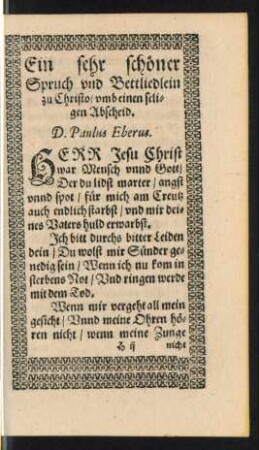 Ein sehr schöner
Spruch vnd Bettliedlein
zu Christo / vmb einen seli-
gen Abscheid.
D. Paulus Eberus.
HERR Jesu Christ
war Mensch vnnd Gott /
Der du lidst marter / angst
vnnd spot / für mich am Creutz
auch endlich starbst / vnd mir dei-
nes Vaters huld erwarbst.
Ich bitt durchs bitter Leiden
dein / Du wolst mir Sünder ge-
nedig sein / Wenn ich nu kom in
sterbens Not / Vnd ringen werde
mit dem Tod.
Wenn mir vergeht all mein
gesicht / Vnnd meine Ohren hö-
ren nicht / wenn meine Zunge
H ij nicht